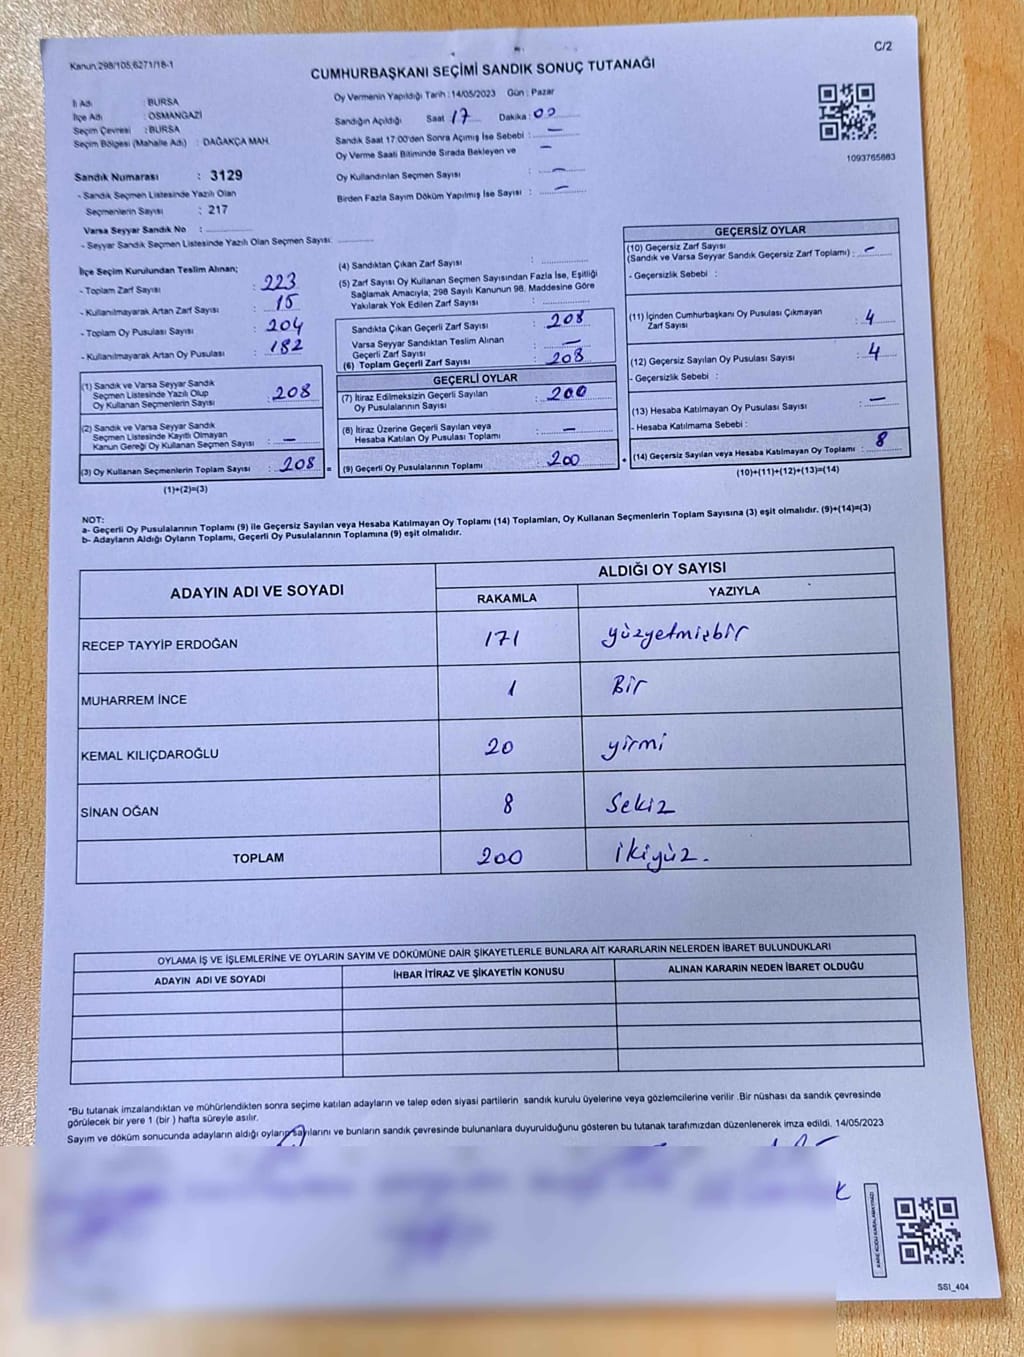 Kanun,298/105,6271/18-1
C/2
CUMHURBAŞKANI SEÇİMİ SANDIK SONUÇ TUTANAĞI
İl Adı : BURSA
İlçe Adı : OSMANGAZİ
Seçim Çevresi : BURSA
Seçim Bölgesi (Mahalle Adı) : DAĞAKÇA MAH.
Sandık Numarası : 3129
- Sandık Seçmen Listesinde Yazılı Olan
Seçmenlerin Sayısı : 217
Varsa Seyyar Sandık No :
- Seyyar Sandık Seçmen Listesinde Yazılı Olan Seçmen Sayısı:
Oy Vermenin Yapıldığı Tarih : 14/05/2023 Gün : Pazar
Sandığın Açıldığı Saat 17 Dakika : 00
Sandık Saat 17:00'den Sonra Açımış İse Sebebi : —
Oy Verme Saati Bitiminde Sırada Bekleyen ve —
Oy Kullandırılan Seçmen Sayısı : —
Birden Fazla Sayım Döküm Yapılmış İse Sayısı : —
1093765663
İlçe Seçim Kurulundan Teslim Alınan;
- Toplam Zarf Sayısı : 223
- Kullanılmayarak Artan Zarf Sayısı : 15
- Toplam Oy Pusulası Sayısı : 204
- Kullanılmayarak Artan Oy Pusulası : 182
(1) Sandık ve Varsa Seyyar Sandık
Seçmen Listesinde Yazılı Olup
Oy Kullanan Seçmenlerin Sayısı : 208
(2) Sandık ve Varsa Seyyar Sandık
Seçmen Listesinde Kayıtlı Olmayan
Kanun Gereği Oy Kullanan Seçmen Sayısı : —
(3) Oy Kullanan Seçmenlerin Toplam Sayısı : 208 =
(1)+(2)=(3)
(4) Sandıktan Çıkan Zarf Sayısı :
(5) Zarf Sayısı Oy Kullanan Seçmen Sayısından Fazla İse, Eşitliği
Sağlamak Amacıyla; 298 Sayılı Kanunun 98. Maddesine Göre
Yakılarak Yok Edilen Zarf Sayısı :
Sandıkta Çıkan Geçerli Zarf Sayısı : 208
Varsa Seyyar Sandıktan Teslim Alınan
Geçerli Zarf Sayısı : —
(6) Toplam Geçerli Zarf Sayısı : 208
GEÇERLİ OYLAR
(7) İtiraz Edilmeksizin Geçerli Sayılan
Oy Pusulalarının Sayısı : 200
(8) İtiraz Üzerine Geçerli Sayılan veya
Hesaba Katılan Oy Pusulası Toplamı : —
(9) Geçerli Oy Pusulalarının Toplamı : 200 +
GEÇERSİZ OYLAR
(10) Geçersiz Zarf Sayısı
(Sandık ve Varsa Seyyar Sandık Geçersiz Zarf Toplamı) : —
- Geçersizlik Sebebi :
(11) İçinden Cumhurbaşkanı Oy Pusulası Çıkmayan
Zarf Sayısı : 4
(12) Geçersiz Sayılan Oy Pusulası Sayısı : 4
- Geçersizlik Sebebi :
(13) Hesaba Katılmayan Oy Pusulası Sayısı : —
- Hesaba Katılmama Sebebi :
(14) Geçersiz Sayılan veya Hesaba Katılmayan Oy Toplamı : 8
(10)+(11)+(12)+(13)=(14)
NOT:
a- Geçerli Oy Pusulalarının Toplamı (9) ile Geçersiz Sayılan veya Hesaba Katılmayan Oy Toplamı (14) Toplamları, Oy Kullanan Seçmenlerin Toplam Sayısına (3) eşit olmalıdır. (9)+(14)=(3)
b- Adayların Aldığı Oyların Toplamı, Geçerli Oy Pusulalarının Toplamına (9) eşit olmalıdır.
ADAYIN ADI VE SOYADI ALDIĞI OY SAYISI
RAKAMLA YAZIYLA
RECEP TAYYİP ERDOĞAN 171 yüzyetmişbir
MUHARREM İNCE 1 Bir
KEMAL KILIÇDAROĞLU 20 yirmi
SİNAN OĞAN 8 Sekiz
TOPLAM 200 ikiyüz.
OYLAMA İŞ VE İŞLEMLERİNE VE OYLARIN SAYIM VE DÖKÜMÜNE DAİR ŞİKAYETLERLE BUNLARA AİT KARARLARIN NELERDEN İBARET BULUNDUKLARI
ADAYIN ADI VE SOYADI İHBAR İTİRAZ VE ŞİKAYETİN KONUSU ALINAN KARARIN NEDEN İBARET OLDUĞU
*Bu tutanak imzalandıktan ve mühürlendikten sonra seçime katılan adayların ve talep eden siyasi partilerin sandık kurulu üyelerine veya gözlemcilerine verilir .Bir nüshası da sandık çevresinde
görülecek bir yere 1 (bir ) hafta süreyle asılır.
Sayım ve döküm sonucunda adayların aldığı oyların sayılarını ve bunların sandık çevresinde bulunanlara duyurulduğunu gösteren bu tutanak tarafımızdan düzenlenerek imza edildi. 14/05/2023
SSI_404